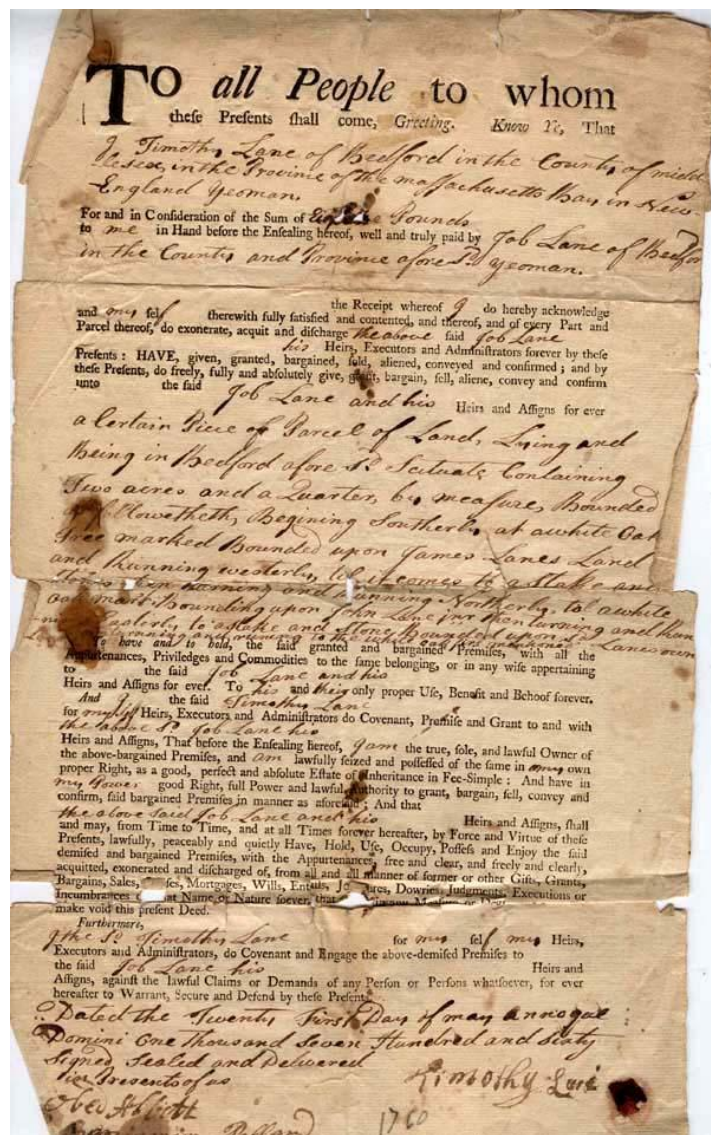 To all People to whom
these Presents shall come, Greeting. Know Ye, That
I Timothy Lane of Bedford in the County of midd
lesex, in the Province of the massachusetts Bay, in New-
England Yeoman,
For and in Consideration of the Sum of Pounds
to me in Hand before the Ensealing hereof, well and truly paid by Job Lane of Bedfor
in the County and Province afore Sd. Yeoman.
the Receipt whereof I do hereby acknowledge
and my self therewith fully satisfied and contented, and thereof, and of every Part and
Parcel thereof, do exonerate, acquit and discharge the above said Job Lane
his Heirs, Executors and Administrators forever by these
Presents: HAVE, given, granted, bargained, sold, aliened, conveyed and confirmed; and by
these Presents, do freely, fully and absolutely give, grant, bargain, sell, aliene, convey and confirm
unto the said Job Lane and his Heirs and Assigns for ever
a Certain Piece of Parcel of Land, Lying and
Being in Bedford afore Sd. Scituate Containing
Two acres and a Quarter, by measure, Bounded
followetheth, Begining Southerly at a white Oak
Tree marked Bounded upon James Lanes Land
and Running westerly, til it comes to a Stake and
Stones then turning and Running Northerly, to a white
oak mark Bounding upon John Lane jnr then turning and Run
-ning Easterly to a stake and stone Bounded upon sd Lanes own
turning and running to the
To have and to hold, the said granted and bargained Premises, with all the
Appurtenances, Priviledges and Commodities to the same belonging, or in any wise appertaining
to the said Job Lane and his
Heirs and Assigns for ever. To his and their only proper Use, Benefit and Behoof forever.
And I the said Timothy Lane
for myself Heirs, Executors and Administrators do Covenant, Promise and Grant to and with
the above Sd. Job Lane his
Heirs and Assigns, That before the Ensealing hereof, I am the true, sole, and lawful Owner of
the above-bargained Premises, and am lawfully seized and possessed of the same in my own
proper Right, as a good, perfect and absolute Estate of Inheritance in Fee-Simple: And have in
my Power good Right, full Power and lawful Authority to grant, bargain, sell, convey and
confirm, said bargained Premises in manner as aforesaid; And that
the above said Job Lane and his Heirs and Assigns, shall
and may, from Time to Time, and at all Times forever hereafter, by Force and Virtue of these
Presents, lawfully, peaceably and quietly Have, Hold, Use, Occupy, Possess and Enjoy the said
demised and bargained Premises, with the Appurtenances, free and clear, and freely and clearly,
acquitted, exonerated and discharged of, from all and all manner of former or other Gifts, Grants,
Bargains, Sales, Mortgages, Wills, Entails, Dowries, Judgments, Executions or
Incumbrances Name or Nature soever, that
make void this present Deed.
Furthermore,
I the Sd. Timothy Lane for my self my Heirs,
Executors and Administrators, do Covenant and Engage the above-demised Premises to
the said Job Lane his Heirs and
Assigns, against the lawful Claims or Demands of any Person or Persons whatsoever, for ever
hereafter to Warrant, Secure and Defend by these Presents.
Dated the Twenty First Day of may annoque
Domini One Thousand Seven Hundred and Sixty
Signed Sealed and Delivered
in Presents of us
Timothy Lane
Obed Abbott
1760